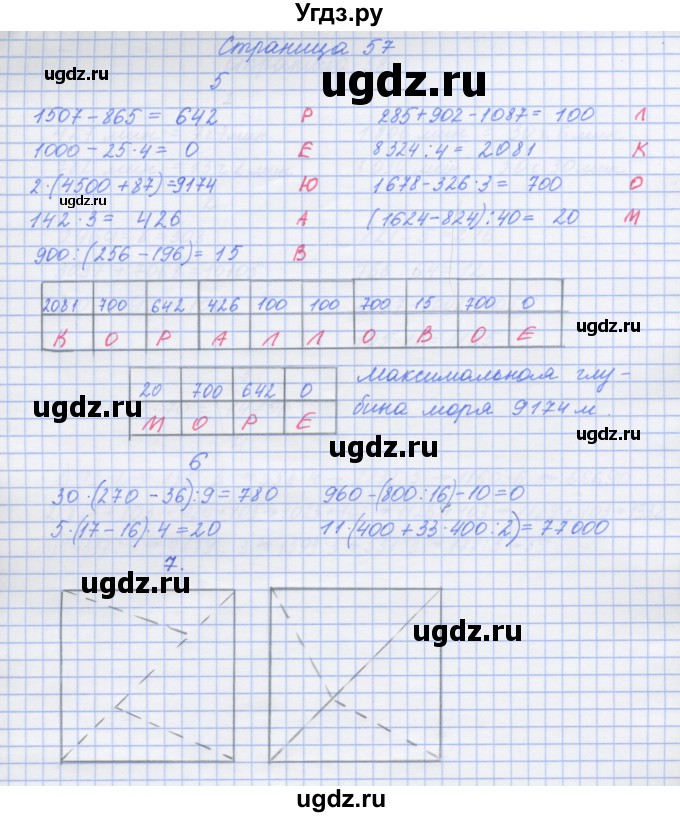 Угдз.ру
Страница 57
ugdz.ru
ugdz.ru
5
1507 - 865 = 642 Р
285 + 902 - 1087 = 100 Л
1000 - 25·4 = 0 Е
8324 : 4 = 2081 К
2·(4500 + 87) = 9174 Ю
1678 - 326·3 = 700 О
ugdz.ru
142·3 = 426 А
(1624 - 824) : 40 = 20 М
900 : (256 - 196) = 15 В
2081 700 642 426 100 100 700 15 700 0
К О Р А Л Л О В О Е
ugdz.ru
20 700 642 0
М О Р Е
Максимальная глу-
бина моря 9174 м.
ugdz.ru
ugdz.ru
6
30·(270 - 36) : 9 = 780
960 - (800 : 16) - 10 = 0
5·(17 - 16)·4 = 20
11·(400 + 33·400 : 2) = 77000
7.
ugdz.ru
ugdz.ru
ugdz.ru
ugdz.ru